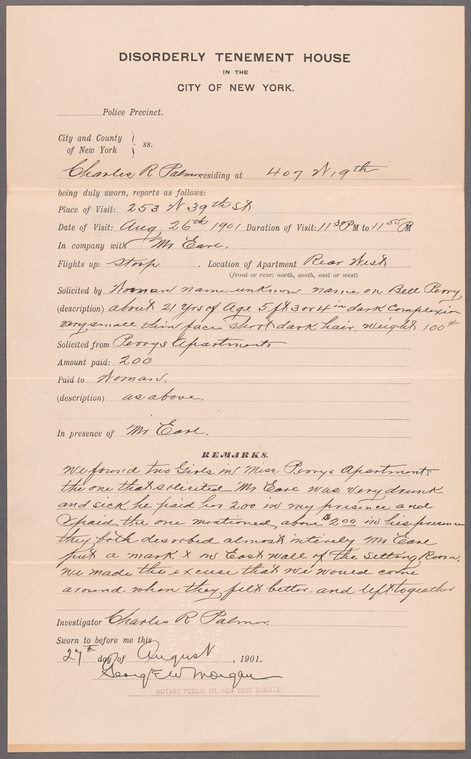 DISORDERLY TENEMENT HOUSE
IN THE
CITY OF NEW YORK.
Police Precinct.
City and County
of New York } ss.
Charles R Palmer residing at 407 W 19th
being duly sworn, reports as follows:
Place of Visit: 253 W 39th St
Date of Visit: Aug, 26th 1901 Duration of Visit: 11 30 PM to 11 55 PM
In company with Mr Earl.
Flights up: stoop . Location of Apartment Rear West
(front or rear: north, south, east or west)
Solicited by Woman name unknow name on Bell Perry
(description) about 21 yrs of Age 5 ft 3 or 4 in dark Complexion
very small thin face short dark hair, weight 100#
Solicited from Perrys Apartments
Amount paid: 2.00
Paid to Woman.
(description) as above.
In presence of Mr Earl.
REMARKS.
We found two Girls in Miss. Perrys Apartments
the one that solicited Mr Earl was very drunk
and sick he paid her 2.00 in my presence and
I paid the one mentioned above $2.00 in his presence
they both desrobed almost intirely Mr Earl
put a mark X on East wall of the Setting Room.
We made the excuse that we would come
around when they felt better, and left togeather
Investigator Charles R. Palmer.
Sworn to before me this
27th day of August , 1901.
George W Morgan
NOTARY PUBLIC NEW YORK COUNTY.